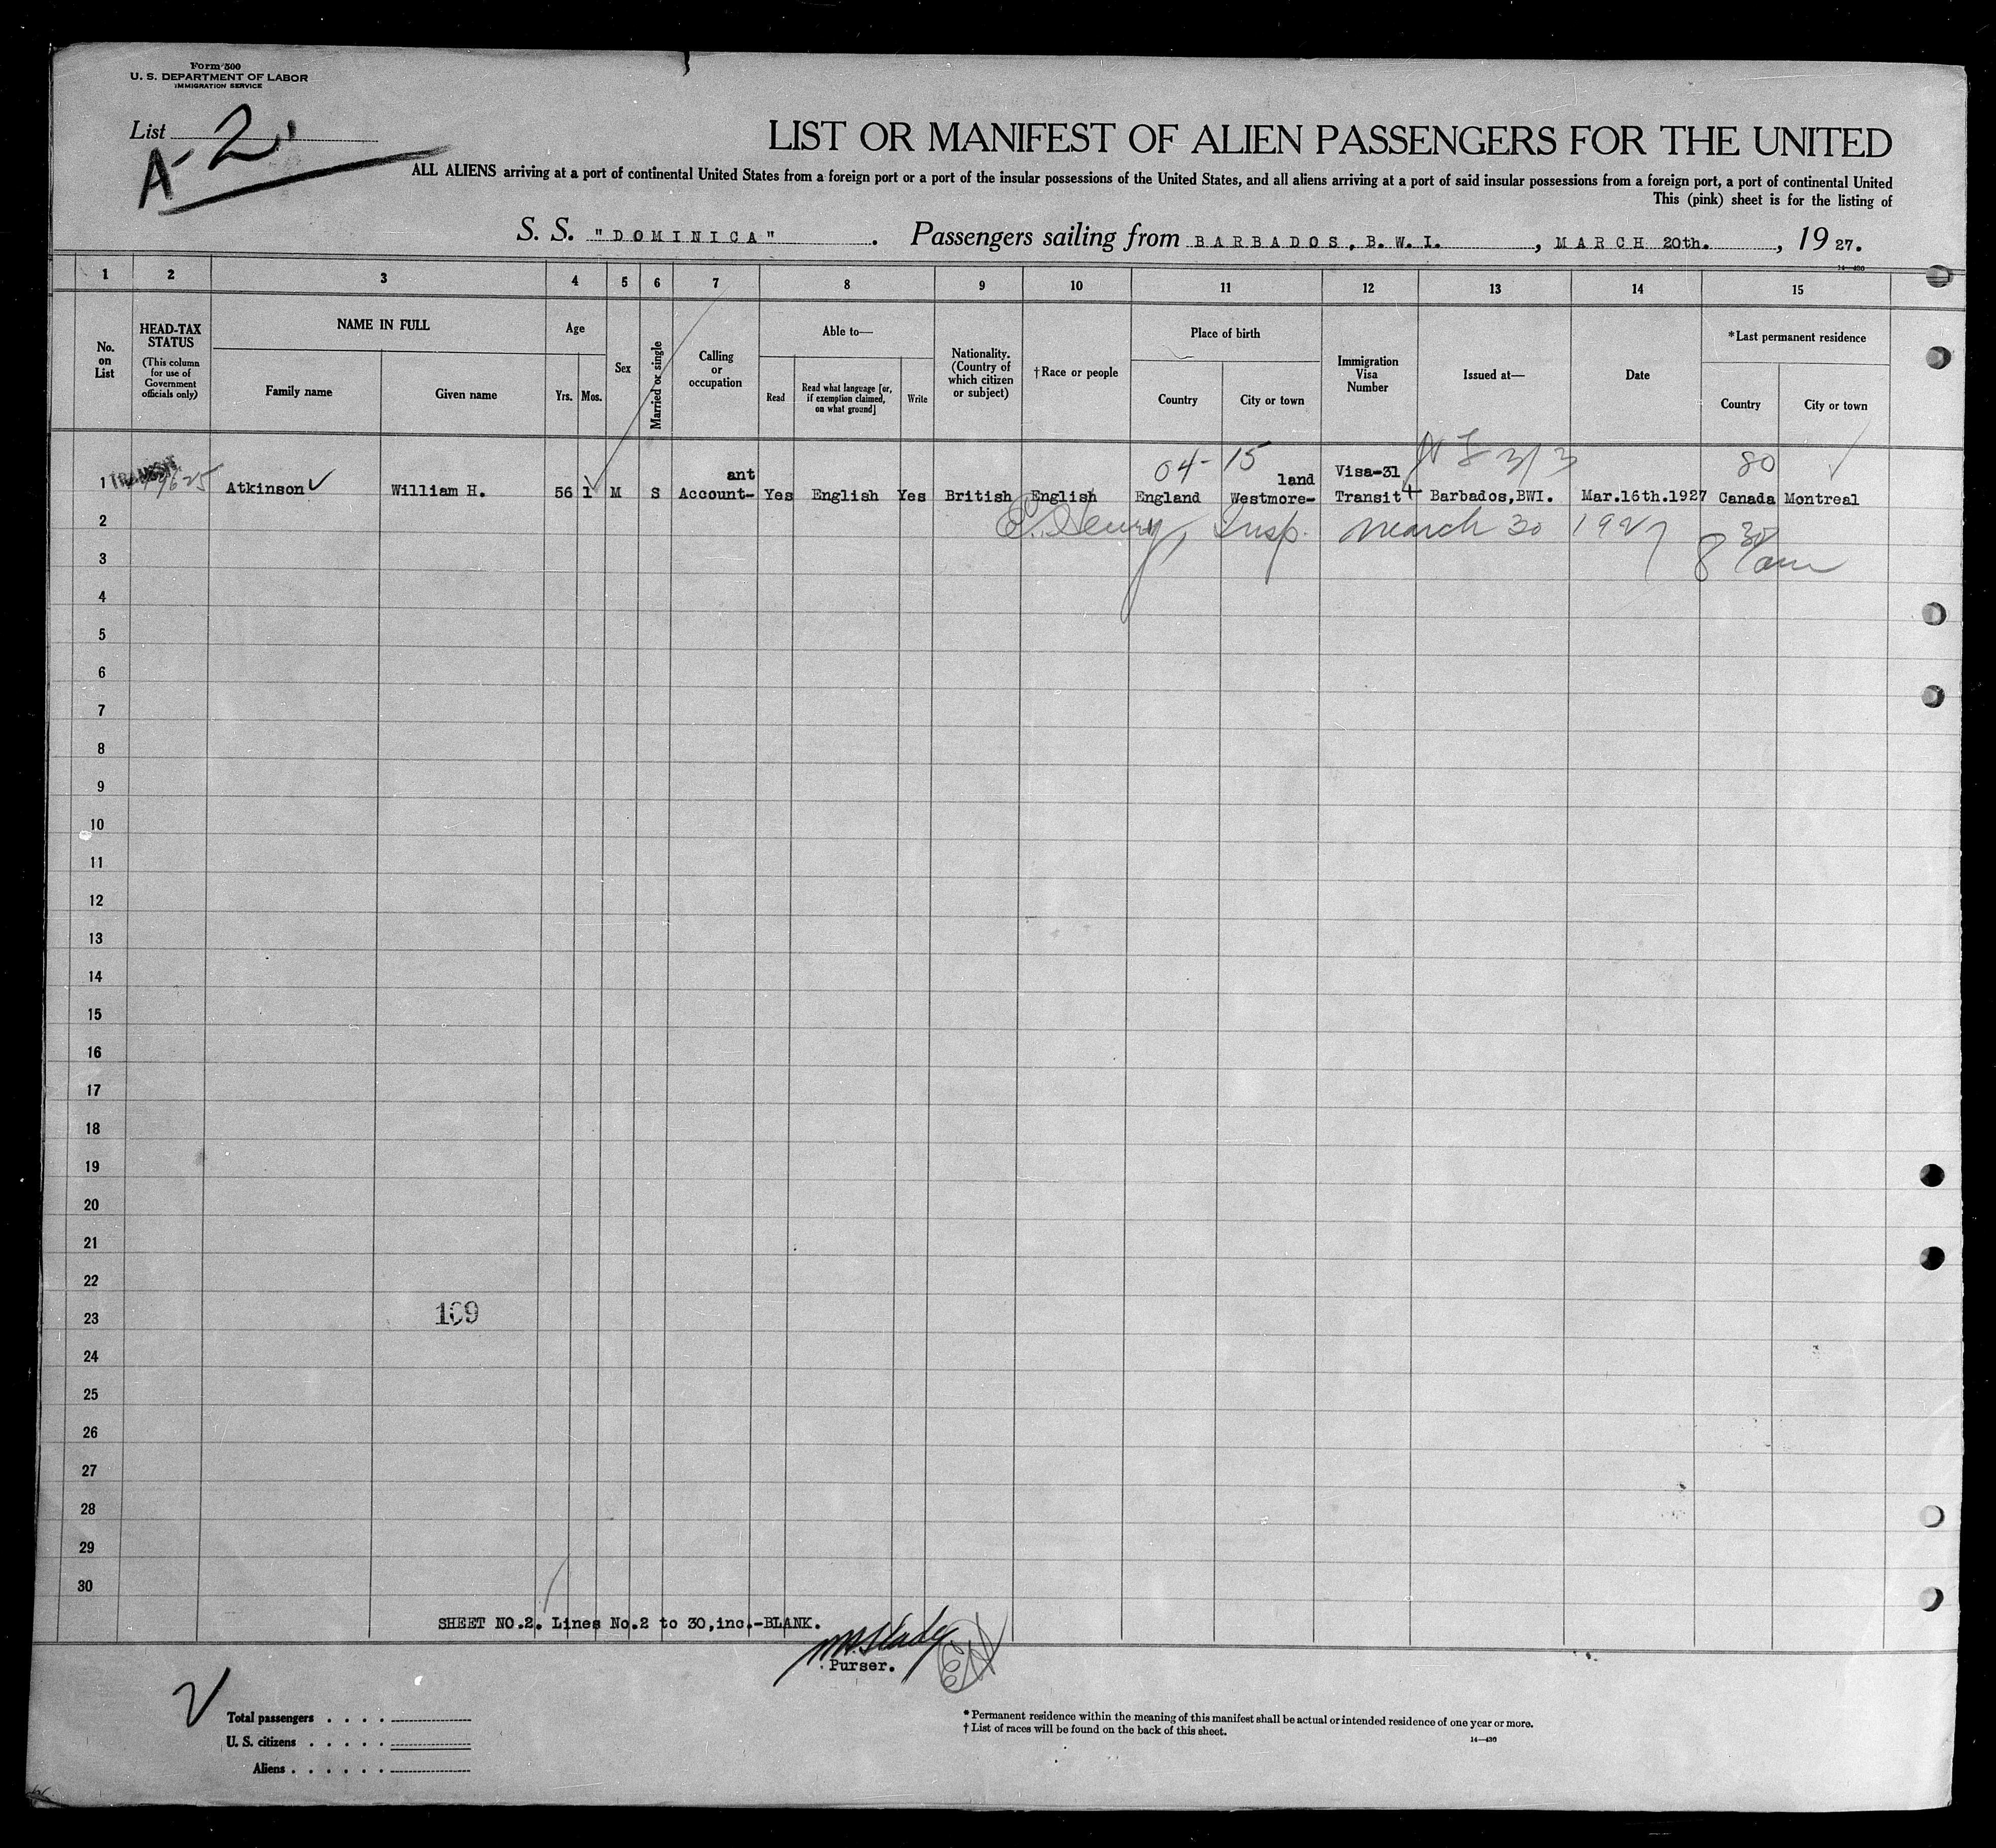 Form 500
U. S. DEPARTMENT OF LABOR
IMMIGRATION SERVICE
List 2
A-
LIST OR MANIFEST OF ALIEN PASSENGERS FOR THE UNITED
ALL ALIENS arriving at a port of continental United States from a foreign port or a port of the insular possessions of the United States, and all aliens arriving at a port of said insular possessions from a foreign port, a port of continental United
This (pink) sheet is for the listing of
S. S. "DOMINICA". Passengers sailing from BARBADOS, B. W. I., MARCH 20th., 1927.
14—430
1 2 3 4 5 6 7 8 9 10 11 12 13 14 15
No. on List
HEAD-TAX STATUS
(This column for use of Government officials only)
NAME IN FULL
Family name
Given name
Age
Yrs. Mos.
Sex
Married or single
Calling or occupation
Able to—
Read
Read what language [or, if exemption claimed, on what ground]
Write
Nationality. (Country of which citizen or subject)
†Race or people
Place of birth
Country
City or town
Immigration Visa Number
Issued at—
Date
*Last permanent residence
Country
City or town
04-15 80
ant land Visa-31
1 TRANSIT Atkinson William H. 56 1 M S Account- Yes English Yes British English England Westmore- Transit Barbados,BWI. Mar.16th.1927 Canada Montreal
2 Henry, Insp. March 30 1927
8 30/am
3
4
5
6
7
8
9
10
11
12
13
14
15
16
17
18
19
20
21
22
23 169
24
25
26
27
28
29
30
SHEET NO.2. Lines No.2 to 30,inc.-BLANK.
Purser.
Total passengers . . . .
U. S. citizens . . . . .
Aliens . . . . . .
* Permanent residence within the meaning of this manifest shall be actual or intended residence of one year or more.
† List of races will be found on the back of this sheet.
14—430